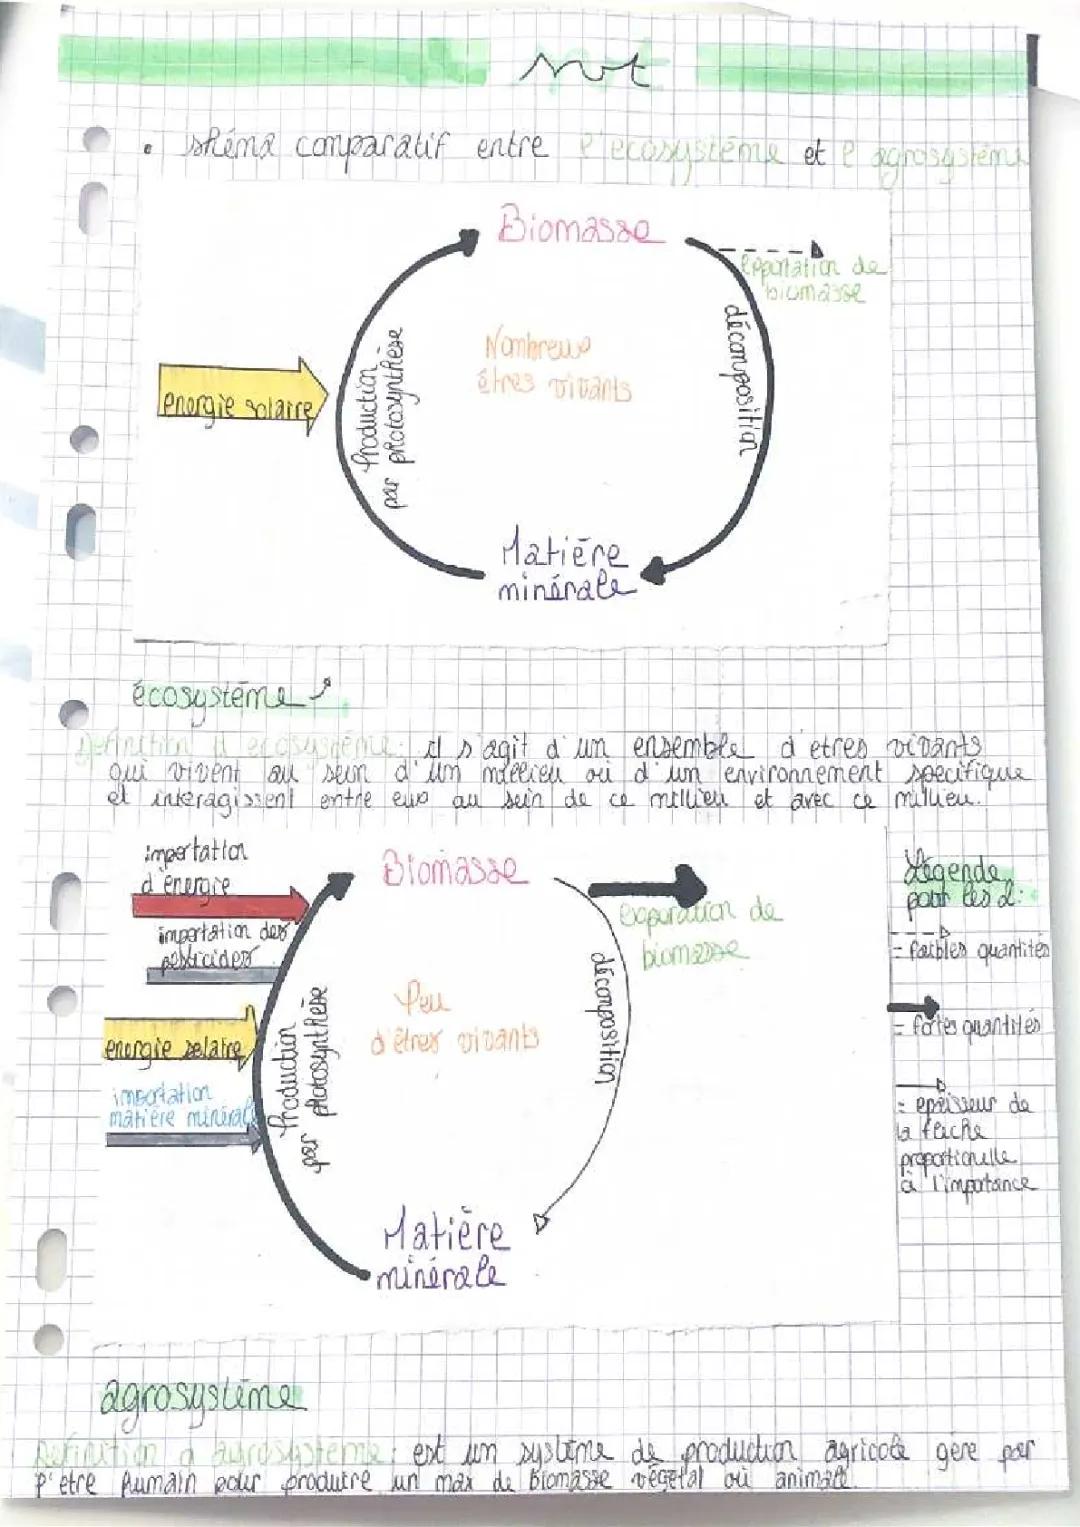 svt
• shéma comparatif entre l'ecosystème et l agrosystème
Biomasse
exportation de
biomasse
décomposition
Nombreux
êtres vivants
énergie solaire
Production
par photosynthèse
Matière
minérale
écosystème
Définition d ecosystème: il s'agit d'un ensemble d'etres vivants
qui vivent au sein d'un millieu ou d'un environnement specifique
et interagissent entre eux au sein de ce millieu et avec ce millieu.
importation
d'énergie
importation des
pesticides
energie solaire
importation
matière minérale
Biomasse
exportation de
biomasse
décomposition
Peu
d'êtres vivants
Production
par photosynthèse
Matière
minérale
Légende
pour les 2:
= faibles quantités
= fortes quantités
= epaisseur de
la flèche
proportionelle
à l'importance
agrosystème
Définition d agrosysteme: est un système de production agricole gere par
l'etre humain pour produire un max de biomasse végétal ou animale.